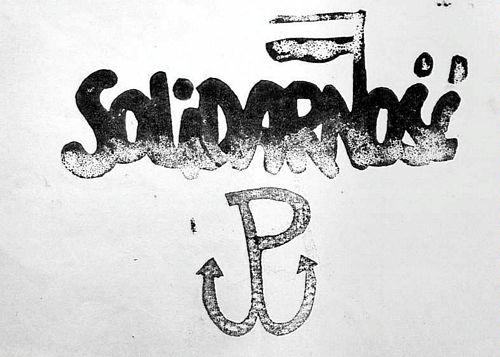 SOLiDARNOŚĆ
PW